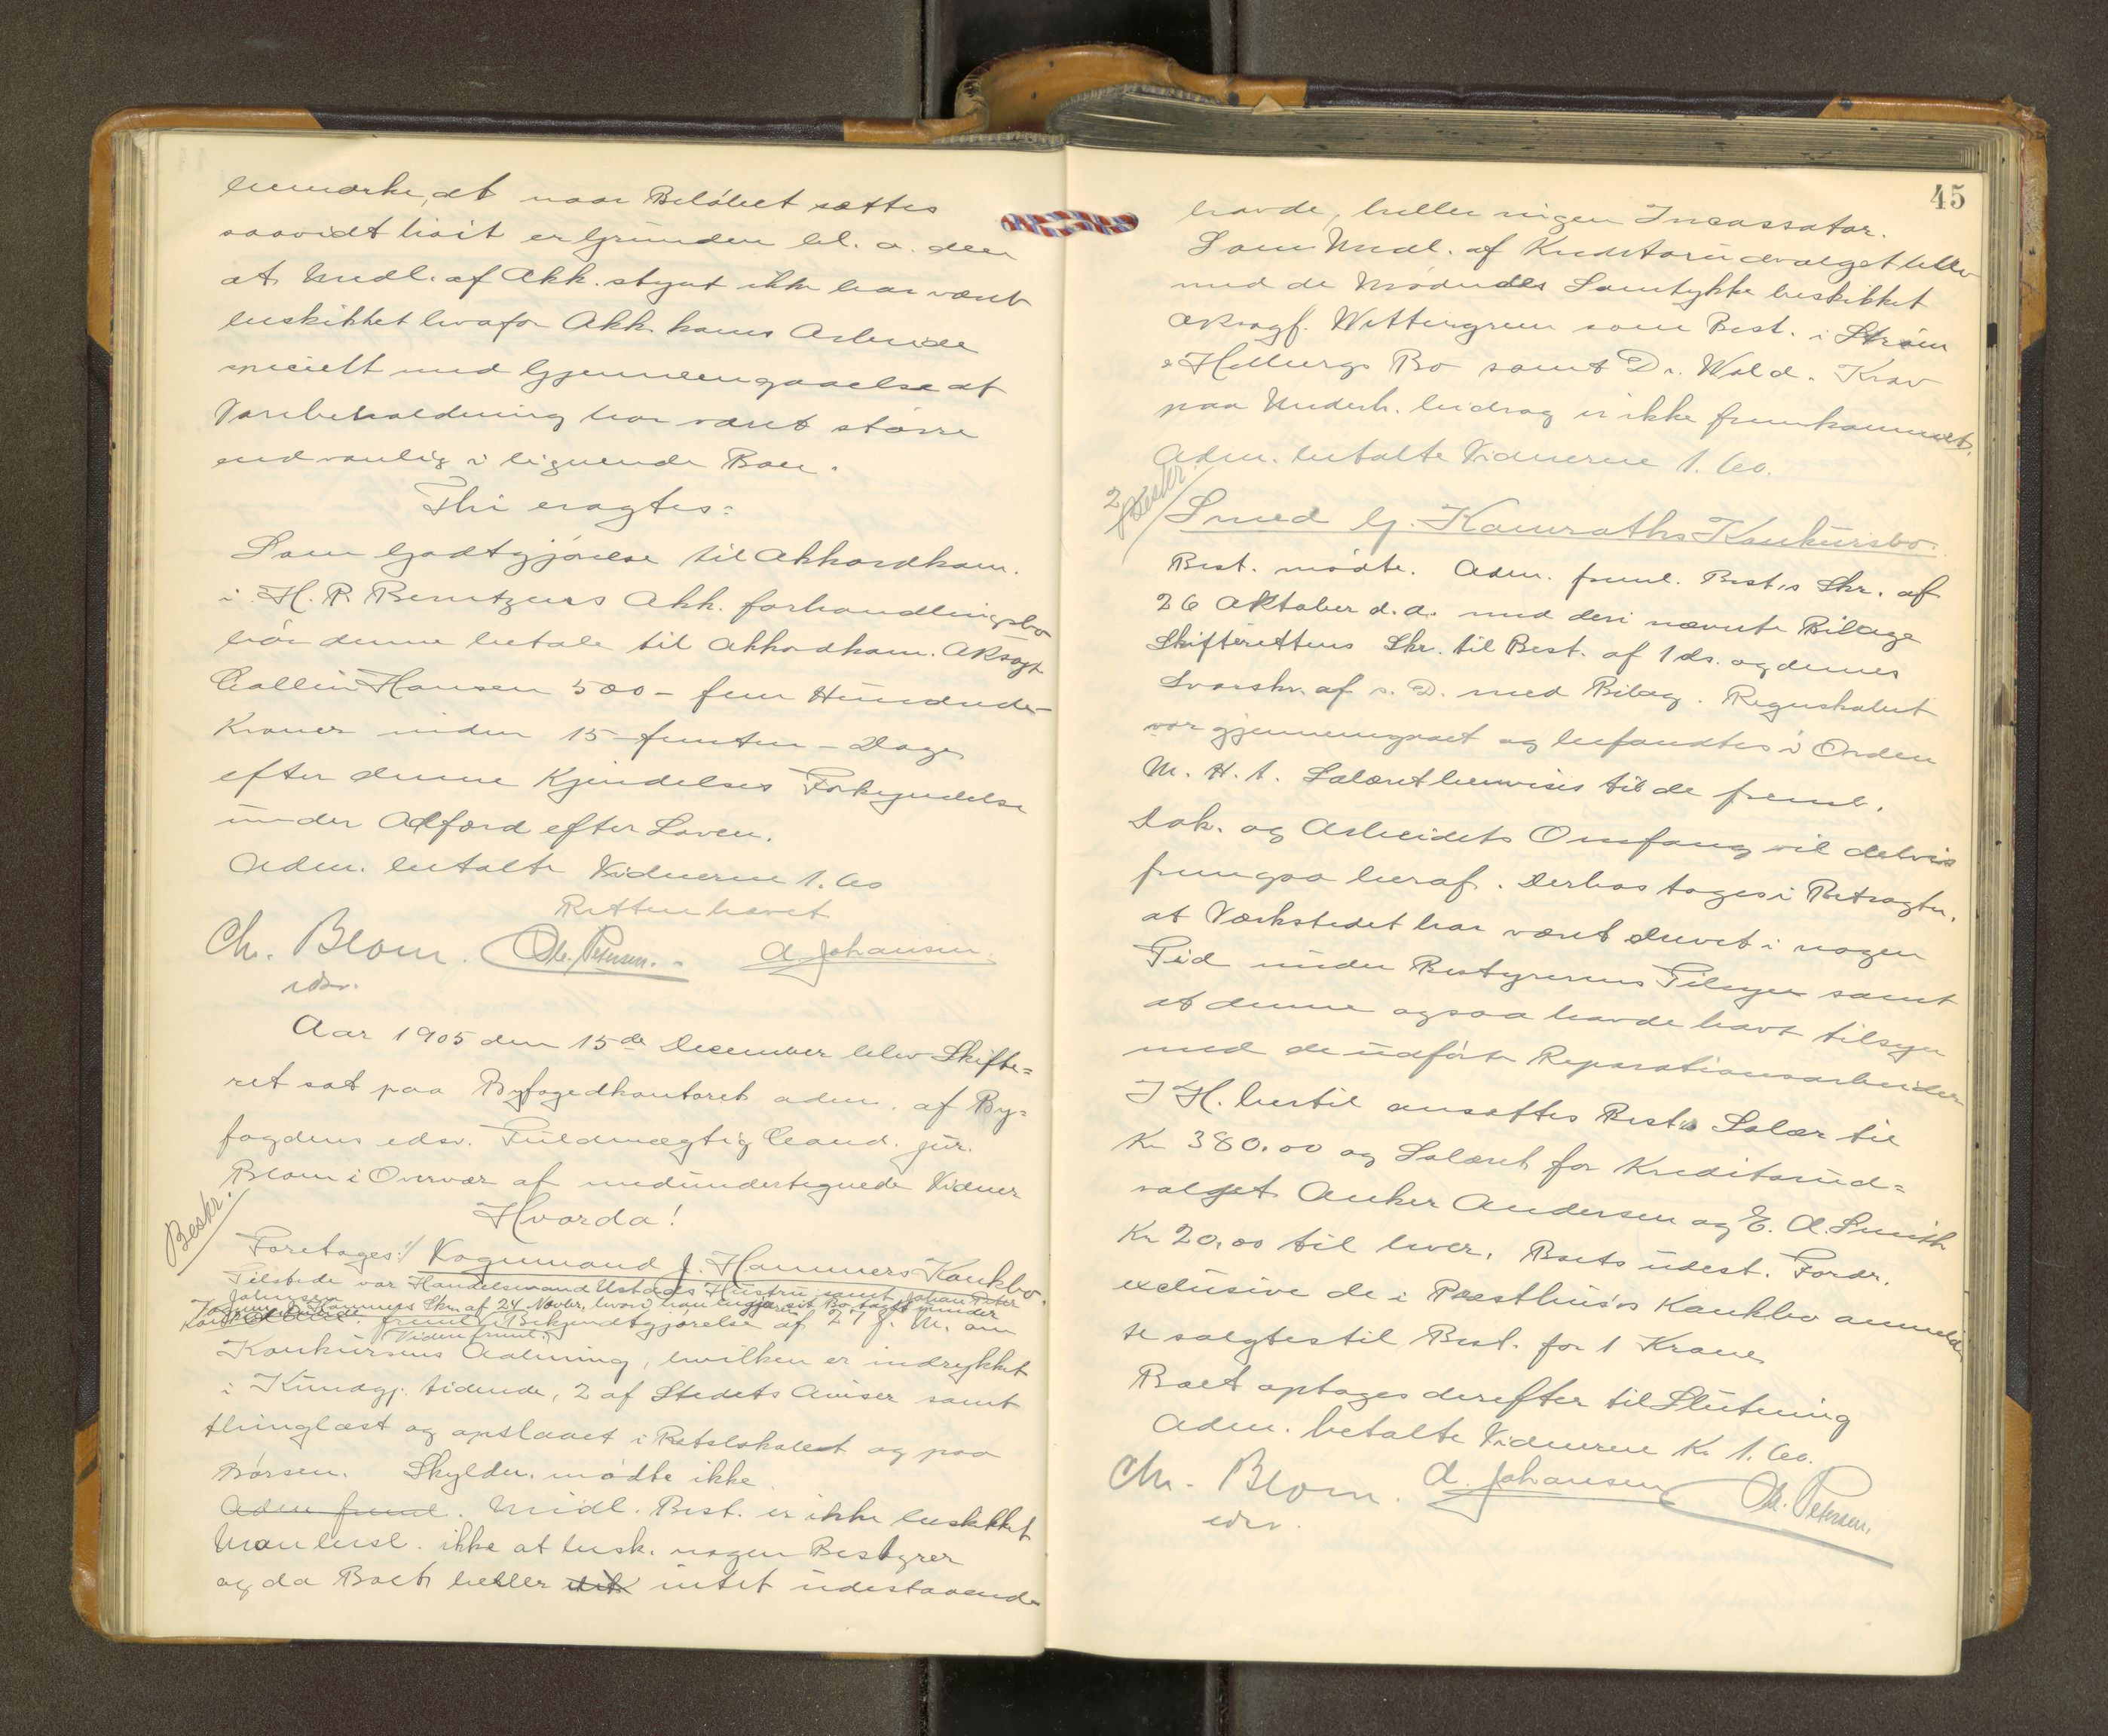 bemærke, at naar Beløbet sættes
saavidt høit er Grunden bl. a. den
at Medl. af Akk. styret ikke har været
beskikket hvafor Akk. koms Arbeide
specielt med Gjennemgaaelse af
Varebeholdning har været større
end vanlig i lignende Boer.
Thi eragtes:
Som Godtgjørelse til Akkordkom.
i H. P. Bentzens Akk. forhandlingsbo
bør denne betale til Akkordkom. Oksagf.
Collin Hansen 500 - fem Hundrede
Kroner inden 15 - femten - Dage
efter denne Kjendelses Forkyndelse
under Adfærd efter Loven.
Adm. betalte Vidnerne 1.60
Retten hævet
Ch. Blom. Chr. Petersen. A. Johansen.
edsv.
Aar 1905 den 15de December blev Skifte=
ret sat paa Byfogedkontoret adm. af By=
fogdens edsv. Fuldmægtig Cand. jur.
Blom i Overvær af medundertegnede Vidner
Hvorda!
Beskr.
Foretages: 1/ Kogemand J. Hammers Konkbo.
Tilstede var Handelsmand Ustads Hustru samt Johan Peter
Johnsen
Hammers Skr. af 24 Novbr. hvori han begjærer sit Bo taget under
Konk. freml. Bekjendtgjørelse af 27 f. M. om
Viden freml.
Konkursens Aabning, hvilken er indrykket
i Kundgj. tidende, 2 af Stedets Aviser samt
thinglæst og opslaaet i Retslokalet og paa
Børsen. Skyldn. mødte ikke
Adm freml. Midl. Best. er ikke beskikket
Man besl. ikke at besk. nogen Bestyrer
og da Boet heller intet udestaaende
45
havde, heller ingen Incassator.
Som Medl. af Kreditorudvalget blev
med de Mødendes Samtykke beskikket
Oksagf. Wettergreen som Best. i Strøm
& Holbergs Bo samt Dr. Wold. Krav
paa Underh. bidrag er ikke fremkommet.
Adm. betalte Vidnerne 1.60.
2 Beskr.
Smed G. Kamraths Konkursbo.
Best. mødte. Adm. freml. Best.s Skr. af
26 Oktober d. a. med deri nævnte Bilage
Skifterettens Skr. til Best. af 1 ds. og dennes
Svarskr. af s. D. med Bilag. Regnskabet
var gjennemgaaet og befandtes i Orden
M. H. t. Salæret henvises til de freml.
Dok. og Arbeidets Omfang vil delvis
fremgaa heraf. Derhos tages i Betragtn.
at Værkstedet har været drevet i nogen
Tid under Bestyrerens Tilsyn samt
at denne ogsaa havde havt tilsyn
med de udførte Reparationsarbeider
I H. hertil ansættes Best.s Salær til
Kr 380.00 og Salæret for Kreditorud=
valget Anker Andersen og E. A. Smith
Kr 20.00 til hver. Boets udest. Fordr.
exclusive de i Præsthus's Konkbo anmeld
te solgtes til Best. for 1 Krone
Boet optages derefter til Slutning
Adm. betalte Vidnerne Kr 1.60.
Ch. Blom. A. Johansen Chr. Petersen.
edsv.